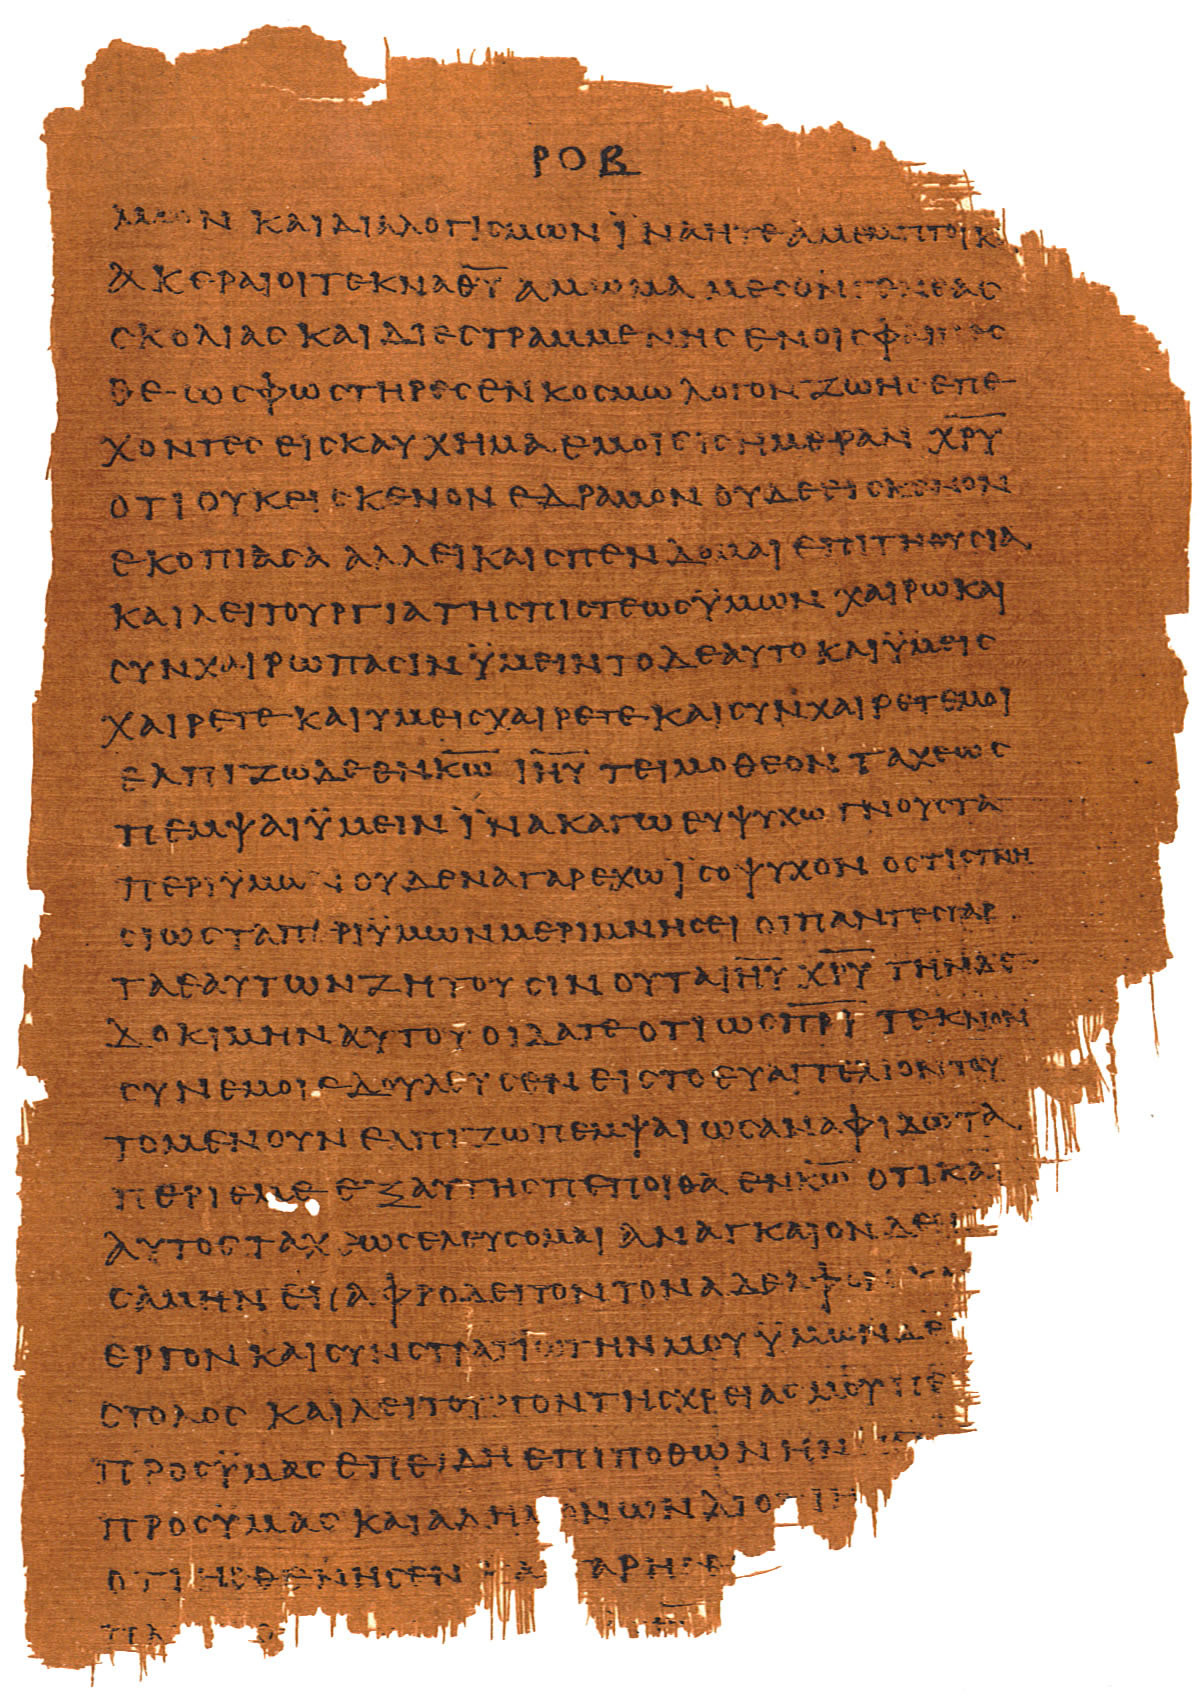 ΡΟΒ
ΚΑΙ ΔΙΑΛΟΓΙϹΜΩΝ ΪΝΑ ΗΤΕ ΑΜΕΜΠΤΟΙ
ΑΚΕΡΑΙΟΙ ΤΕΚΝΑ Θ̅Υ̅ ΑΜΩΜΑ ΜΕϹΟΝ ΓΕΝΕΑϹ
ϹΚΟΛΙΑϹ ΚΑΙ ΔΙΕϹΤΡΑΜΜΕΝΗϹ ΕΝ ΟΙϹ
ΘΕ ΩϹ ΦΩϹΤΗΡΕϹ ΕΝ ΚΟϹΜΩ ΛΟΓΟΝ ΖΩΗϹ ΕΠΕ
ΧΟΝΤΕϹ ΕΙϹ ΚΑΥΧΗΜΑ ΕΜΟΙ ΕΙϹ ΗΜΕΡΑΝ Χ̅Ρ̅Υ̅
ΟΤΙ ΟΥΚ ΕΙϹ ΚΕΝΟΝ ΕΔΡΑΜΟΝ ΟΥΔΕ ΕΙϹ ΚΕΝΟΝ
ΕΚΟΠΙΑϹΑ ΑΛΛ ΕΙ ΚΑΙ ϹΠΕΝΔΟΜΑΙ ΕΠΙ ΤΗ ΘΥϹΙΑ
ΚΑΙ ΛΕΙΤΟΥΡΓΙΑ ΤΗϹ ΠΙϹΤΕΩϹ ΫΜΩΝ ΧΑΙΡΩ ΚΑΙ
ϹΥΝΧΑΙΡΩ ΠΑϹΙΝ ΫΜΕΙΝ ΤΟ ΔΕ ΑΥΤΟ ΚΑΙ ΫΜΕΙϹ
ΧΑΙΡΕΤΕ ΚΑΙ ΥΜΕΙϹ ΧΑΙΡΕΤΕ ΚΑΙ ϹΥΝΧΑΙΡΕΤΕ ΜΟΙ
ΕΛΠΙΖΩ ΔΕ ΕΝ Κ̅Ω̅ Ι̅Η̅Υ̅ ΤΕΙΜΟΘΕΟΝ ΤΑΧΕΩϹ
ΠΕΜΨΑΙ ΫΜΕΙΝ ΪΝΑ ΚΑΓΩ ΕΥΨΥΧΩ ΓΝΟΥϹ ΤΑ
ΠΕΡΙ ΫΜΩΝ ΟΥΔΕΝΑ ΓΑΡ ΕΧΩ ΙϹΟΨΥΧΟΝ ΟϹΤΙϹ ΓΝΗ
ϹΙΩϹ ΤΑ ΠΕΡΙ ΫΜΩΝ ΜΕΡΙΜΝΗϹΕΙ ΟΙ ΠΑΝΤΕϹ ΓΑΡ
ΤΑ ΕΑΥΤΩΝ ΖΗΤΟΥϹΙΝ ΟΥ ΤΑ Ι̅Η̅Υ̅ Χ̅Ρ̅Υ̅ ΤΗΝ ΔΕ
ΔΟΚΙΜΗΝ ΑΥΤΟΥ ΟΙΔΑΤΕ ΟΤΙ ΩϹ Π̅Ρ̅Ι̅ ΤΕΚΝΟΝ
ϹΥΝ ΕΜΟΙ ΕΔΟΥΛΕΥϹΕΝ ΕΙϹ ΤΟ ΕΥΑΓΓΕΛΙΟΝ ΤΟΥ
ΤΟ ΜΕΝ ΟΥΝ ΕΛΠΙΖΩ ΠΕΜΨΑΙ ΩϹ ΑΝ ΑΦΙΔΩ ΤΑ
ΠΕΡΙ ΕΜΕ ΕΞΑΥΤΗϹ ΠΕΠΟΙΘΑ ΕΝ Κ̅Ω̅ ΟΤΙ ΚΑΙ
ΑΥΤΟϹ ΤΑΧΕΩϹ ΕΛΕΥϹΟΜΑΙ ΑΝΑΓΚΑΙΟΝ ΔΕ
ϹΑΜΗΝ ΕΠΑΦΡΟΔΕΙΤΟΝ ΤΟΝ ΑΔΕΛΦΟΝ
ΕΡΓΟΝ ΚΑΙ ϹΥΝϹΤΡΑΤΙΩΤΗΝ ΜΟΥ ΫΜΩΝ ΔΕ
ϹΤΟΛΟϹ ΚΑΙ ΛΕΙΤΟΥΡΓΟΝ ΤΗϹ ΧΡΕΙΑϹ ΜΟΥ ΠΕ
ΠΡΟϹ ΫΜΑϹ ΕΠΕΙΔΗ ΕΠΙΠΟΘΩΝ ΗΝ
ΠΡΟϹ ΫΜΑϹ ΚΑΙ ΑΔΗΜΟΝΩΝ ΔΙΟΤΙ Η
ΟΤΙ ΗϹΘΕΝΗϹΕΝ ΓΑΡ